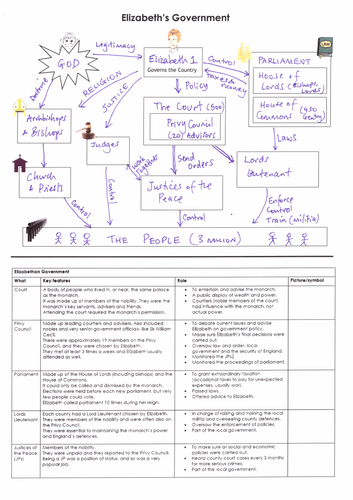 Elizabeth's Government
GOD
Legitimacy
Elizabeth 1
Governs the Country
Control
Taxes &
money
PARLIAMENT
House of
Lords (Bishops,
Lords)
House of
Commons (450
Gentry)
Doctrine
RELIGION
JUSTICE
Policy
The Court (500)
Privy Council
(20) Advisors
Laws
Archbishops
& Bishops
Judges
Work
together
Send
Orders
Lords
Lieutenant
Church
& Priests
Control
Justices of the
Peace
Enforce
Control
Train (militia)
Control
Control
THE PEOPLE (3 million)
Elizabethan Government
What Key features Role Picture/symbol
Court
A body of people who lived in, or near, the same palace
as the monarch.
It was made up of members of the nobility. They were the
monarch's key servants, advisers and friends.
Attending the court required the monarch's permission.
To entertain and advise the monarch.
A public display of wealth and power.
Courtiers (noble members of the court)
had influence with the monarch, not
actual power.
Privy
Council
Made up leading courtiers and advisers. Also included
nobles and very senior government officials- like Sir William
Cecil.
There were approximately 19 members on the Privy
Council, and they were chosen by Elizabeth.
They met at least 3 times a week and Elizabeth usually
attended as well.
To debate current issues and advise
Elizabeth on government policy.
Made sure Elizabeth's final decisions were
carried out.
Oversaw law and order, local
government and the security of England.
Monitored the JPs
Monitored the proceedings of parliament.
Parliament
Made up of the House of Lords (including bishops) and the
House of Commons.
It could only be called and dismissed by the monarch.
Elections were held before each new parliament, but very
few people could vote.
Elizabeth called parliament 10 times during her reign.
To grant extraordinary taxation
(occasional taxes to pay for unexpected
expenses, usually war).
Passed laws.
Offered advice to Elizabeth.
Lords
Lieutenant
Each county had a Lord Lieutenant chosen by Elizabeth.
They were members of the nobility and were often also on
the Privy Council.
They were essential to maintaining the monarch's power
and England's defences.
In charge of raising and training the local
militia and overseeing county defences.
Oversaw the enforcement of policies.
Part of the local government.
Justices of
the Peace
(JPs)
Members of the nobility.
They were unpaid and they reported to the Privy Council.
Being a JP was a position of status, and so was a very
popular job.
To make sure all social and economic
policies were carried out.
Heard county court cases every 3 months
for more serious crimes.
Part of the local government.